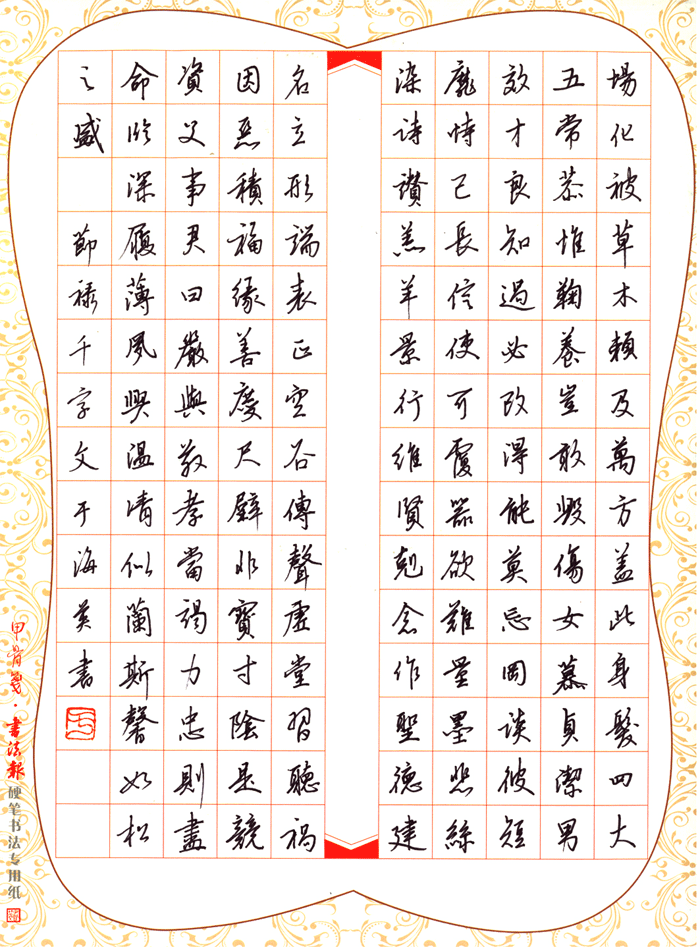 場化被草木賴及萬方盖此身髮四大
五常恭惟鞠養豈敢毀傷女慕貞潔男
效才良知過必改得能莫忘罔談彼短
靡恃己長信使可覆器欲難量墨悲絲
染詩讚羔羊景行維賢剋念作聖德建
名立形端表正空谷傳聲虛堂習聽禍
因惡積福緣善慶尺璧非寶寸陰是競
資父事君曰嚴與敬孝當竭力忠則盡
命臨深履薄夙興溫清似蘭斯馨如松
之盛 節録千字文于海英書
甲骨箋·書法報 硬笔书法专用纸